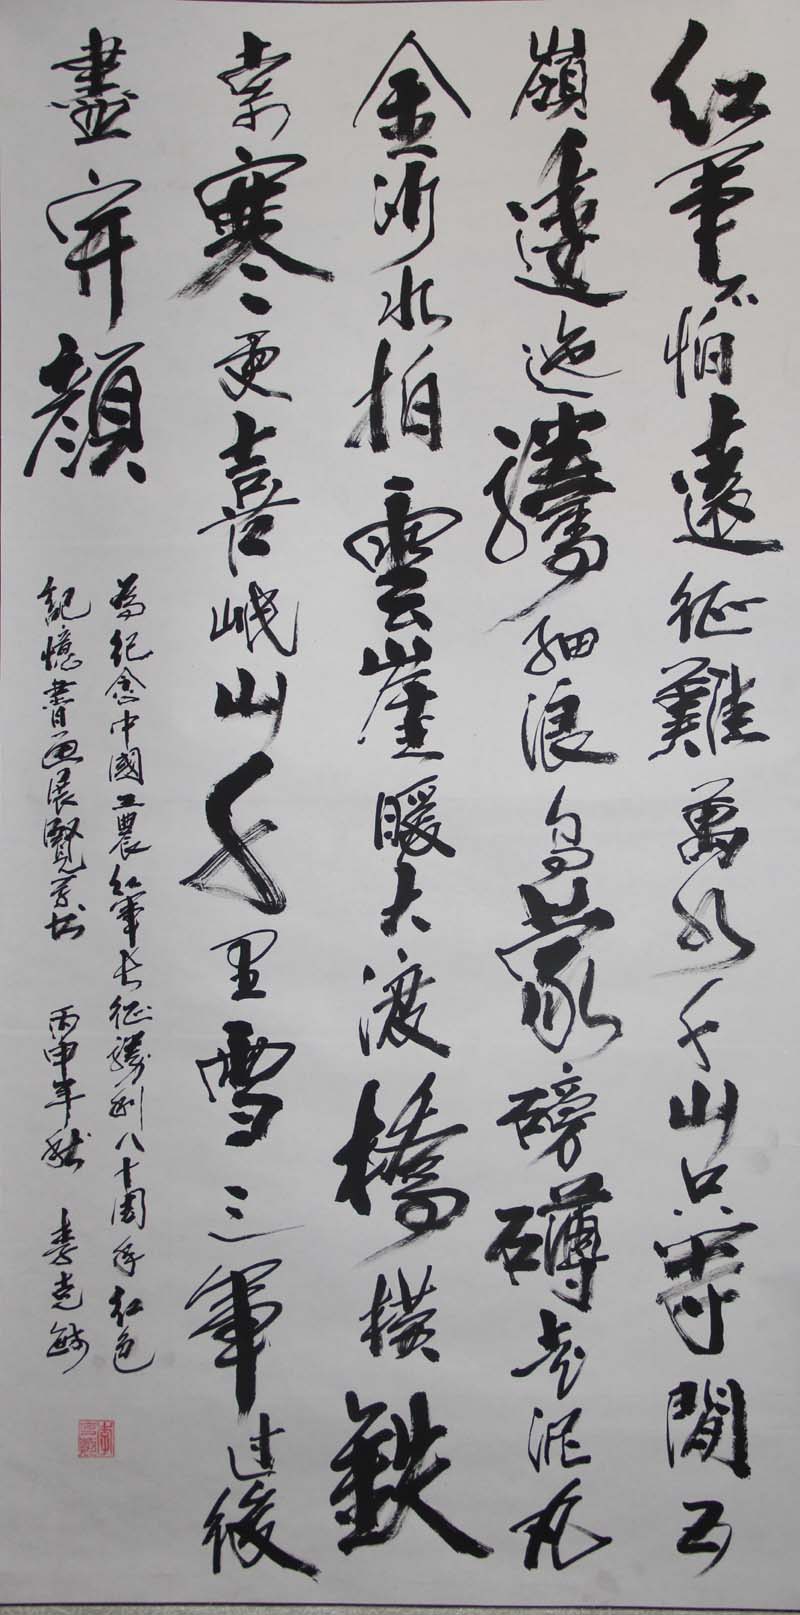 紅軍不怕遠征難萬水千山只等閒五
嶺逶迤騰細浪烏蒙磅礴走泥丸
金沙水拍雲崖暖大渡橋横鉄
索寒更喜岷山千里雪三軍过後
盡開顏
為紀念中國工農紅軍長征勝利八十周年紅色
記憶書画展覽 丙申年秋 李克